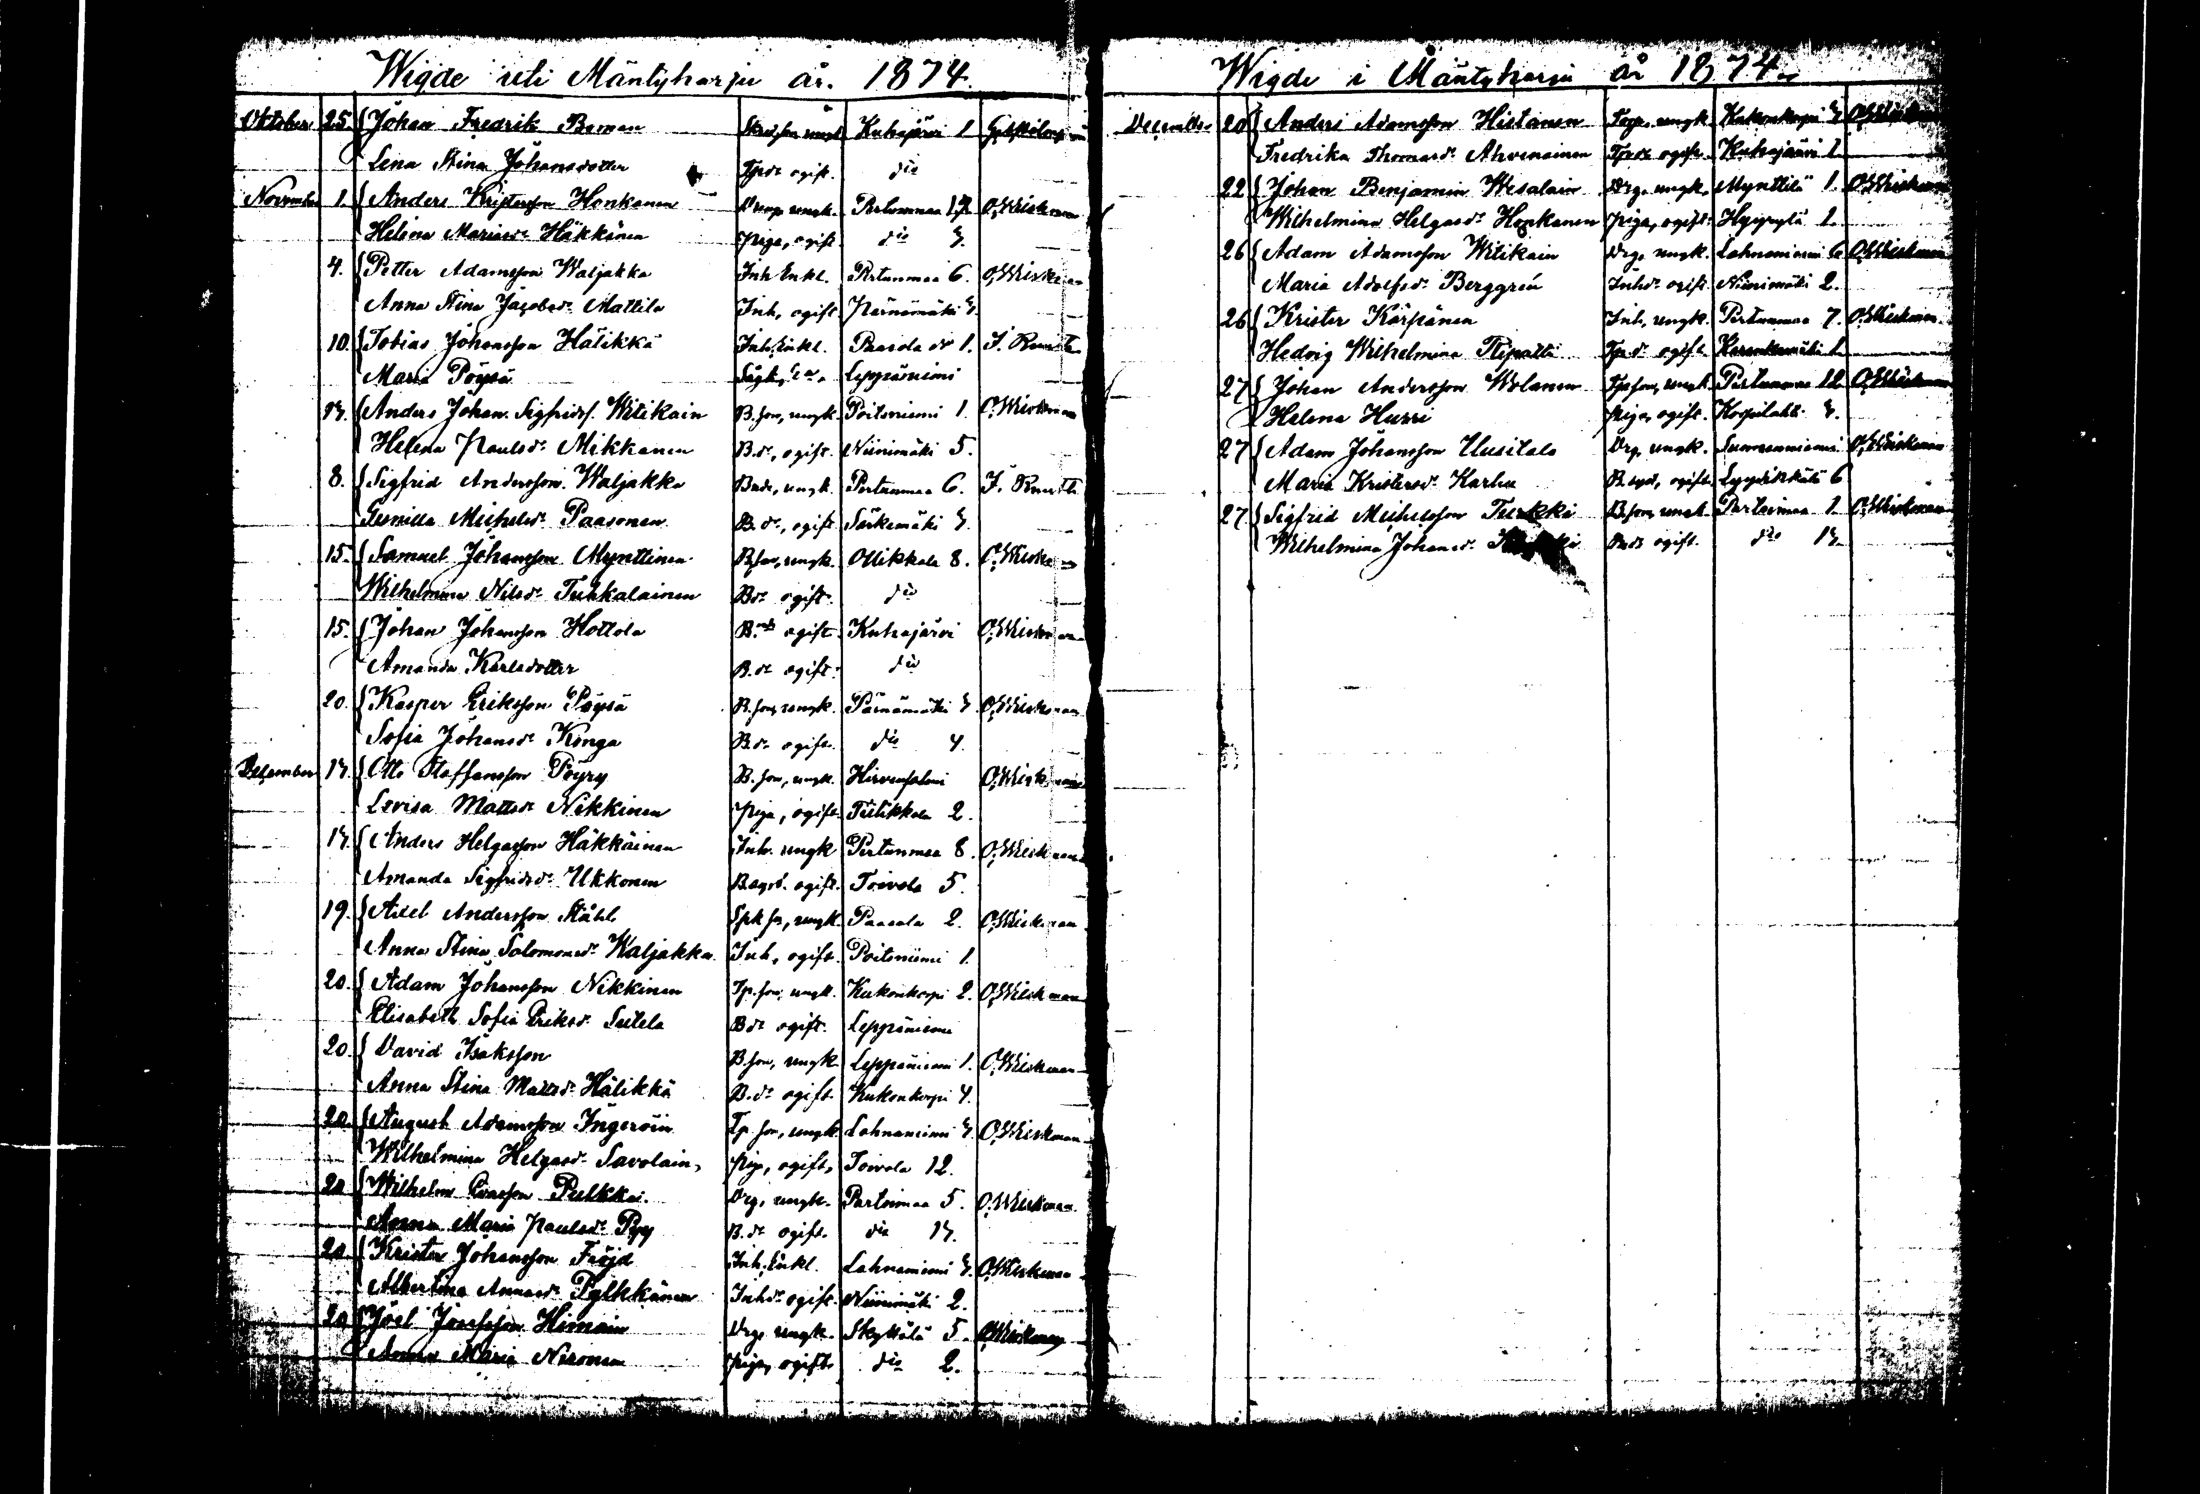 Wigde uti Mäntyharju år. 1874.
Oktober 25. Johan Fredrik Boman ungk. Kuhajärvi 1
Lena Stina Johansdotter Tpdr ogift. dio
November 1. Anders Kristersson Honkanen Dreng ungk. Pertunmaa 17 O. Weckman
Helena Mariasdr Häkkänen piga, ogift dio 3.
4. Petter Adamsson Waljakka Inh. Enkl. Pertunmaa 6. O. Weckman
Anna Stina Jacobsdr Mattila Inh, ogift Pärnämäki 3.
10. Tobias Johansson Hälikkä Inh. Enkl. Paasola 1.
Maria Pöysä Leppäniemi
13. Anders Johan Sigfridss. Witikain B.son, ungk. Poitoniemi 1. O. Weckman
Helena Paulsdr Mikkanen B.dr, ogift. Niinimäki 5.
8. Sigfrid Andersson Waljakka Bnde, ungk. Pertunmaa 6.
Michelsdr Paasonen B.dr, ogift Särkemäki 3.
15. Samuel Johansson Mynttinen B.son, ungk. Ollikkala 8. O. Weckman
Wilhelmina Nilsdr Tuhkalainen Bdr ogift. dio
15. Johan Johansson Hottola ogift Kuhajärvi O. Weckman
Amanda Karlsdotter B.dr ogift. dio
20. Kasper Eriksson Pöysä B.son, ungk. Pärnämäki 3 O. Weckman
Sofia Johansdr Konga B.dr ogift. dio 4.
December 13. Otto Staffansson Pöyry B.son, ungk. Hirvensalmi O. Weckman
Lovisa Mattsdr Nikkinen Piga, ogift. Tulikkala 2.
13. Anders Helgasson Häkkäinen Inh. ungk Pertunmaa 8. O. Weckman
Amanda Sigfridsdr Ukkonen ogift. Toivola 5.
19. Axel Andersson Ståhl ungk. Paasola 2. O. Weckman
Anna Stina Salomonsdr Waljakka Inh, ogift. Poitoniemi 1.
20. Adam Johansson Nikkinen Tp.son, ungk. Kukonkorpi 2. O. Weckman
Elisabeth Sofia Eriksdr Sutela Bdr ogift. Leppäniemi
20. David Isaksson B.son, ungk. Leppäniemi 1. O. Weckman
Anna Stina Mattsdr Hälikkä B.dr ogift. Kukonkorpi 4.
20. August Adamsson Ingeröin Tp.son, ungk. Lahnaniemi 3. O. Weckman
Wilhelmina Helgasdr Savolain, Pig, ogift, Toivola 12.
20 Wilhelm Evasson Pulkka. Drg, ungk. Pertunmaa 5. O. Weckman
Anna Maria Paulsdr Pyy B.dr ogift. dio 13.
20 Krister Johansson Fröjd Inh. Enkl. Lahnaniemi 3. O. Weckman
Albertina Annasdr Pylkkänen Inhdr ogift. Niinimäki 2.
20 Joel Josefsson Himain Drg, ungk. Skyttälä 5. O. Weckman
Anna Maria Neronen Piga, ogift. dio 2.
Wigde i Mäntyharju år 1874.
December 20 Anders Adamsson Hietanen ungk. Kukonkorpi 3 O. Weckman
Fredrika Thomasdr Ahvenainen Tpdr ogift. Kuhajärvi 1
22 Johan Benjamin Wesalain Drg. ungk, Mynttilä 1. O. Weckman
Wilhelmina Helgasdr Honkanen piga, ogift. 1.
26 Adam Adamsson Witikain Drg, ungk. Lahnaniemi 6 O. Weckman
Maria Adolfsdr Berggrén Inhdr ogift. Niinimäki 2.
26 Krister Kärpänen Inh, ungk. Pertunmaa 7. O. Weckman
Hedvig Wilhelmina Tpdr ogift. Karankamäki 1.
27 Johan Andersson Wolanen Tpson, ungk. Pertunmaa 12 O. Weckman
Helena Hurri Piga, ogift. Korpilahti 3.
27 Adam Johansson Uusitalo Drg, ungk. O. Weckman
Maria Kristersdr Karhu ogift. Lyydikkälä 6
27 Sigfrid Michelsson Turkki B.son, ungk. Pertunmaa 1. O. Weckman
Wilhelmina Johansdr ogift. dio 13.